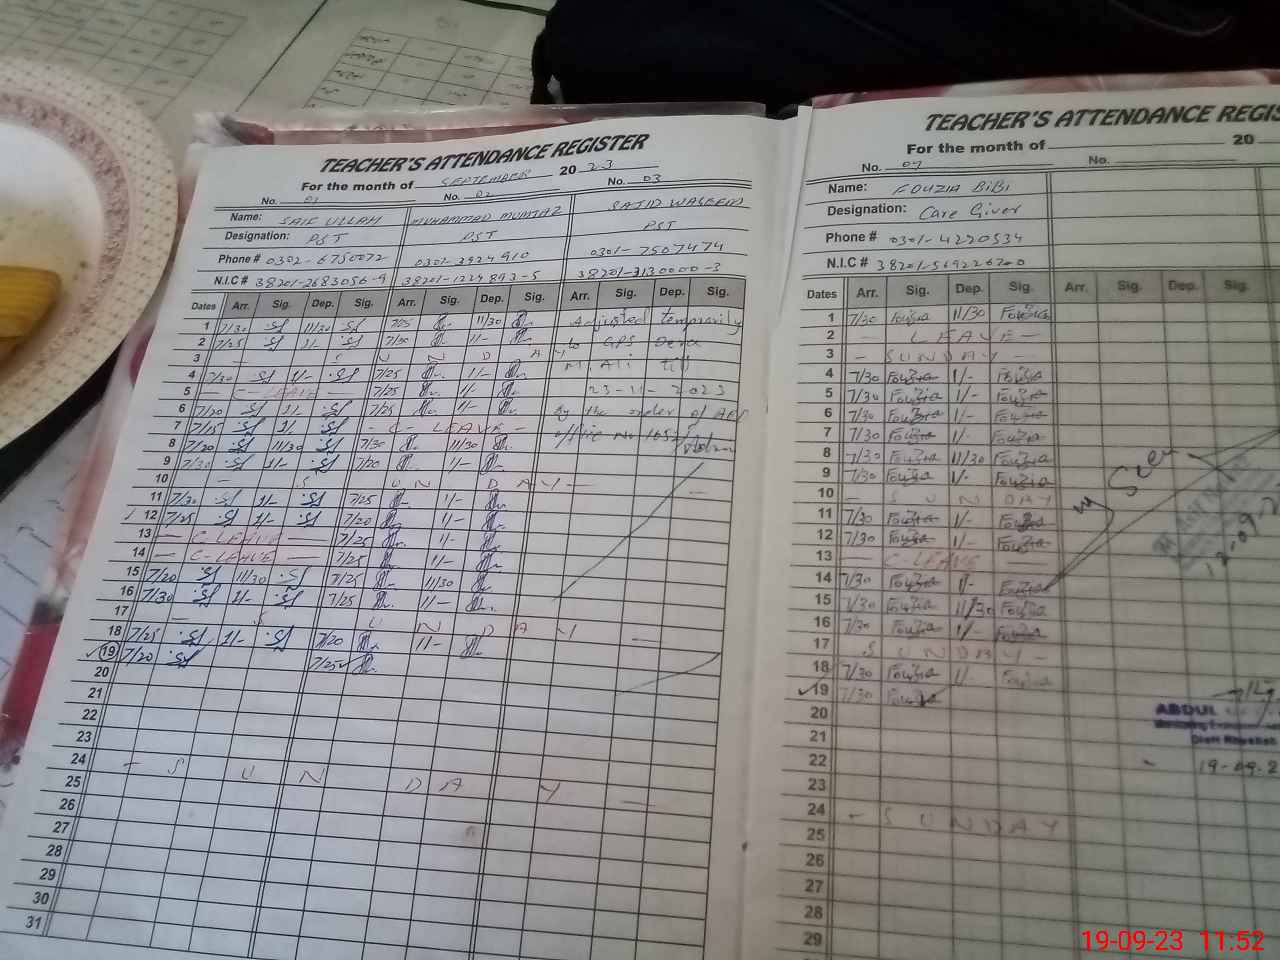 TEACHER'S ATTENDANCE REGISTER
For the month of SEPTEMBER 20 23
No. 01 No. 02 No. 03
Name: SAIF ULLAH MUHAMMAD MUMTAZ SAJID WASEEM
Designation: PST PST PST
Phone # 0302-6750072 0301-3924910 0301-7507474
N.I.C # 38201-2683056-9 38201-1224893-5 38201-3130000-3
Dates Arr. Sig. Dep. Sig. Arr. Sig. Dep. Sig. Arr. Sig. Dep. Sig.
1 7/30 11/30 7/25 11/30 Adjusted temporarily
2 7/25 11/- 7/30 11/- to GPS Dera
3 - S U N D A Y M. Ali till
4 7/30 11/- 7/25 11/-
5 - C-LEAVE - 7/25 11/- 23-11-2023
6 7/20 11/- 7/25 11/- By the order of AEO
7 7/15 11/- - C-LEAVE - office no
8 7/20 11/30 7/30 11/30
9 7/30 11/- 7/20 11/-
10 - S U N D A Y - -
11 7/30 11/- 7/25 11/-
12 7/25 11/- 7/20 11/-
13 - C-LEAVE - 7/25 11/-
14 - C-LEAVE - 7/25 11/-
15 7/20 11/30 7/25 11/30
16 7/30 11/- 7/25 11/-
17 - S U N D A Y -
18 7/25 11/- 7/20 11/-
19 7/20 7/25
20
21
22
23
24 - S U N D A Y -
25
26
27
28
29
30
31
TEACHER'S ATTENDANCE REGIS
For the month of 20
No. 07 No.
Name: FOUZIA BIBI
Designation: Care Giver
Phone # 0301-4220534
N.I.C # 38201-569226720-0
Dates Arr. Sig. Dep. Sig. Arr. Sig. Dep. Sig.
1 7/30 Fouzia 11/30 Fouzia
2 - LEAVE -
3 - SUNDAY -
4 7/30 Fouzia 11/- Fouzia
5 7/30 Fouzia 11/- Fouzia
6 7/30 Fouzia 11/- Fouzia
7 7/30 Fouzia 11/- Fouzia
8 7/30 Fouzia 11/30 Fouzia
9 7/30 Fouzia 11/- Fouzia
10 - SUNDAY
11 7/30 Fouzia 11/- Fouzia
12 7/30 Fouzia 11/- Fouzia
13 - C-LEAVE -
14 7/30 Fouzia 11/- Fouzia
15 7/30 Fouzia 11/30 Fouzia
16 7/30 Fouzia 11/- Fouzia
17 - SUNDAY -
18 7/30 Fouzia 11/- Fouzia
19 7/30 Fouzia
20
21
22
23
24 - SUNDAY
25
26
27
28
29
Seen
12-09-2
ABDUL
19-09-2
19-09-23 11:52